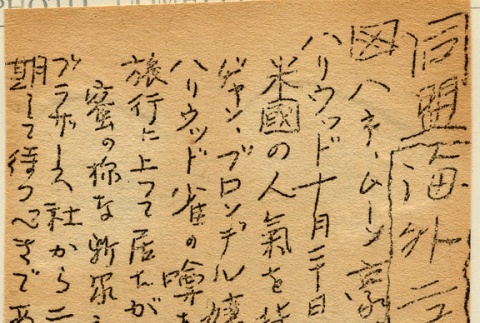 同盟海外ニ
図 ハネームーン豪
ハリウッド十月二十日
米國の人氣を背
ジャン・ブロンデル嬢
ハリウッド雀の噂を
旅行に上つて居たが
蜜の様な新家
ブラザース社から二
期して待つべきであ